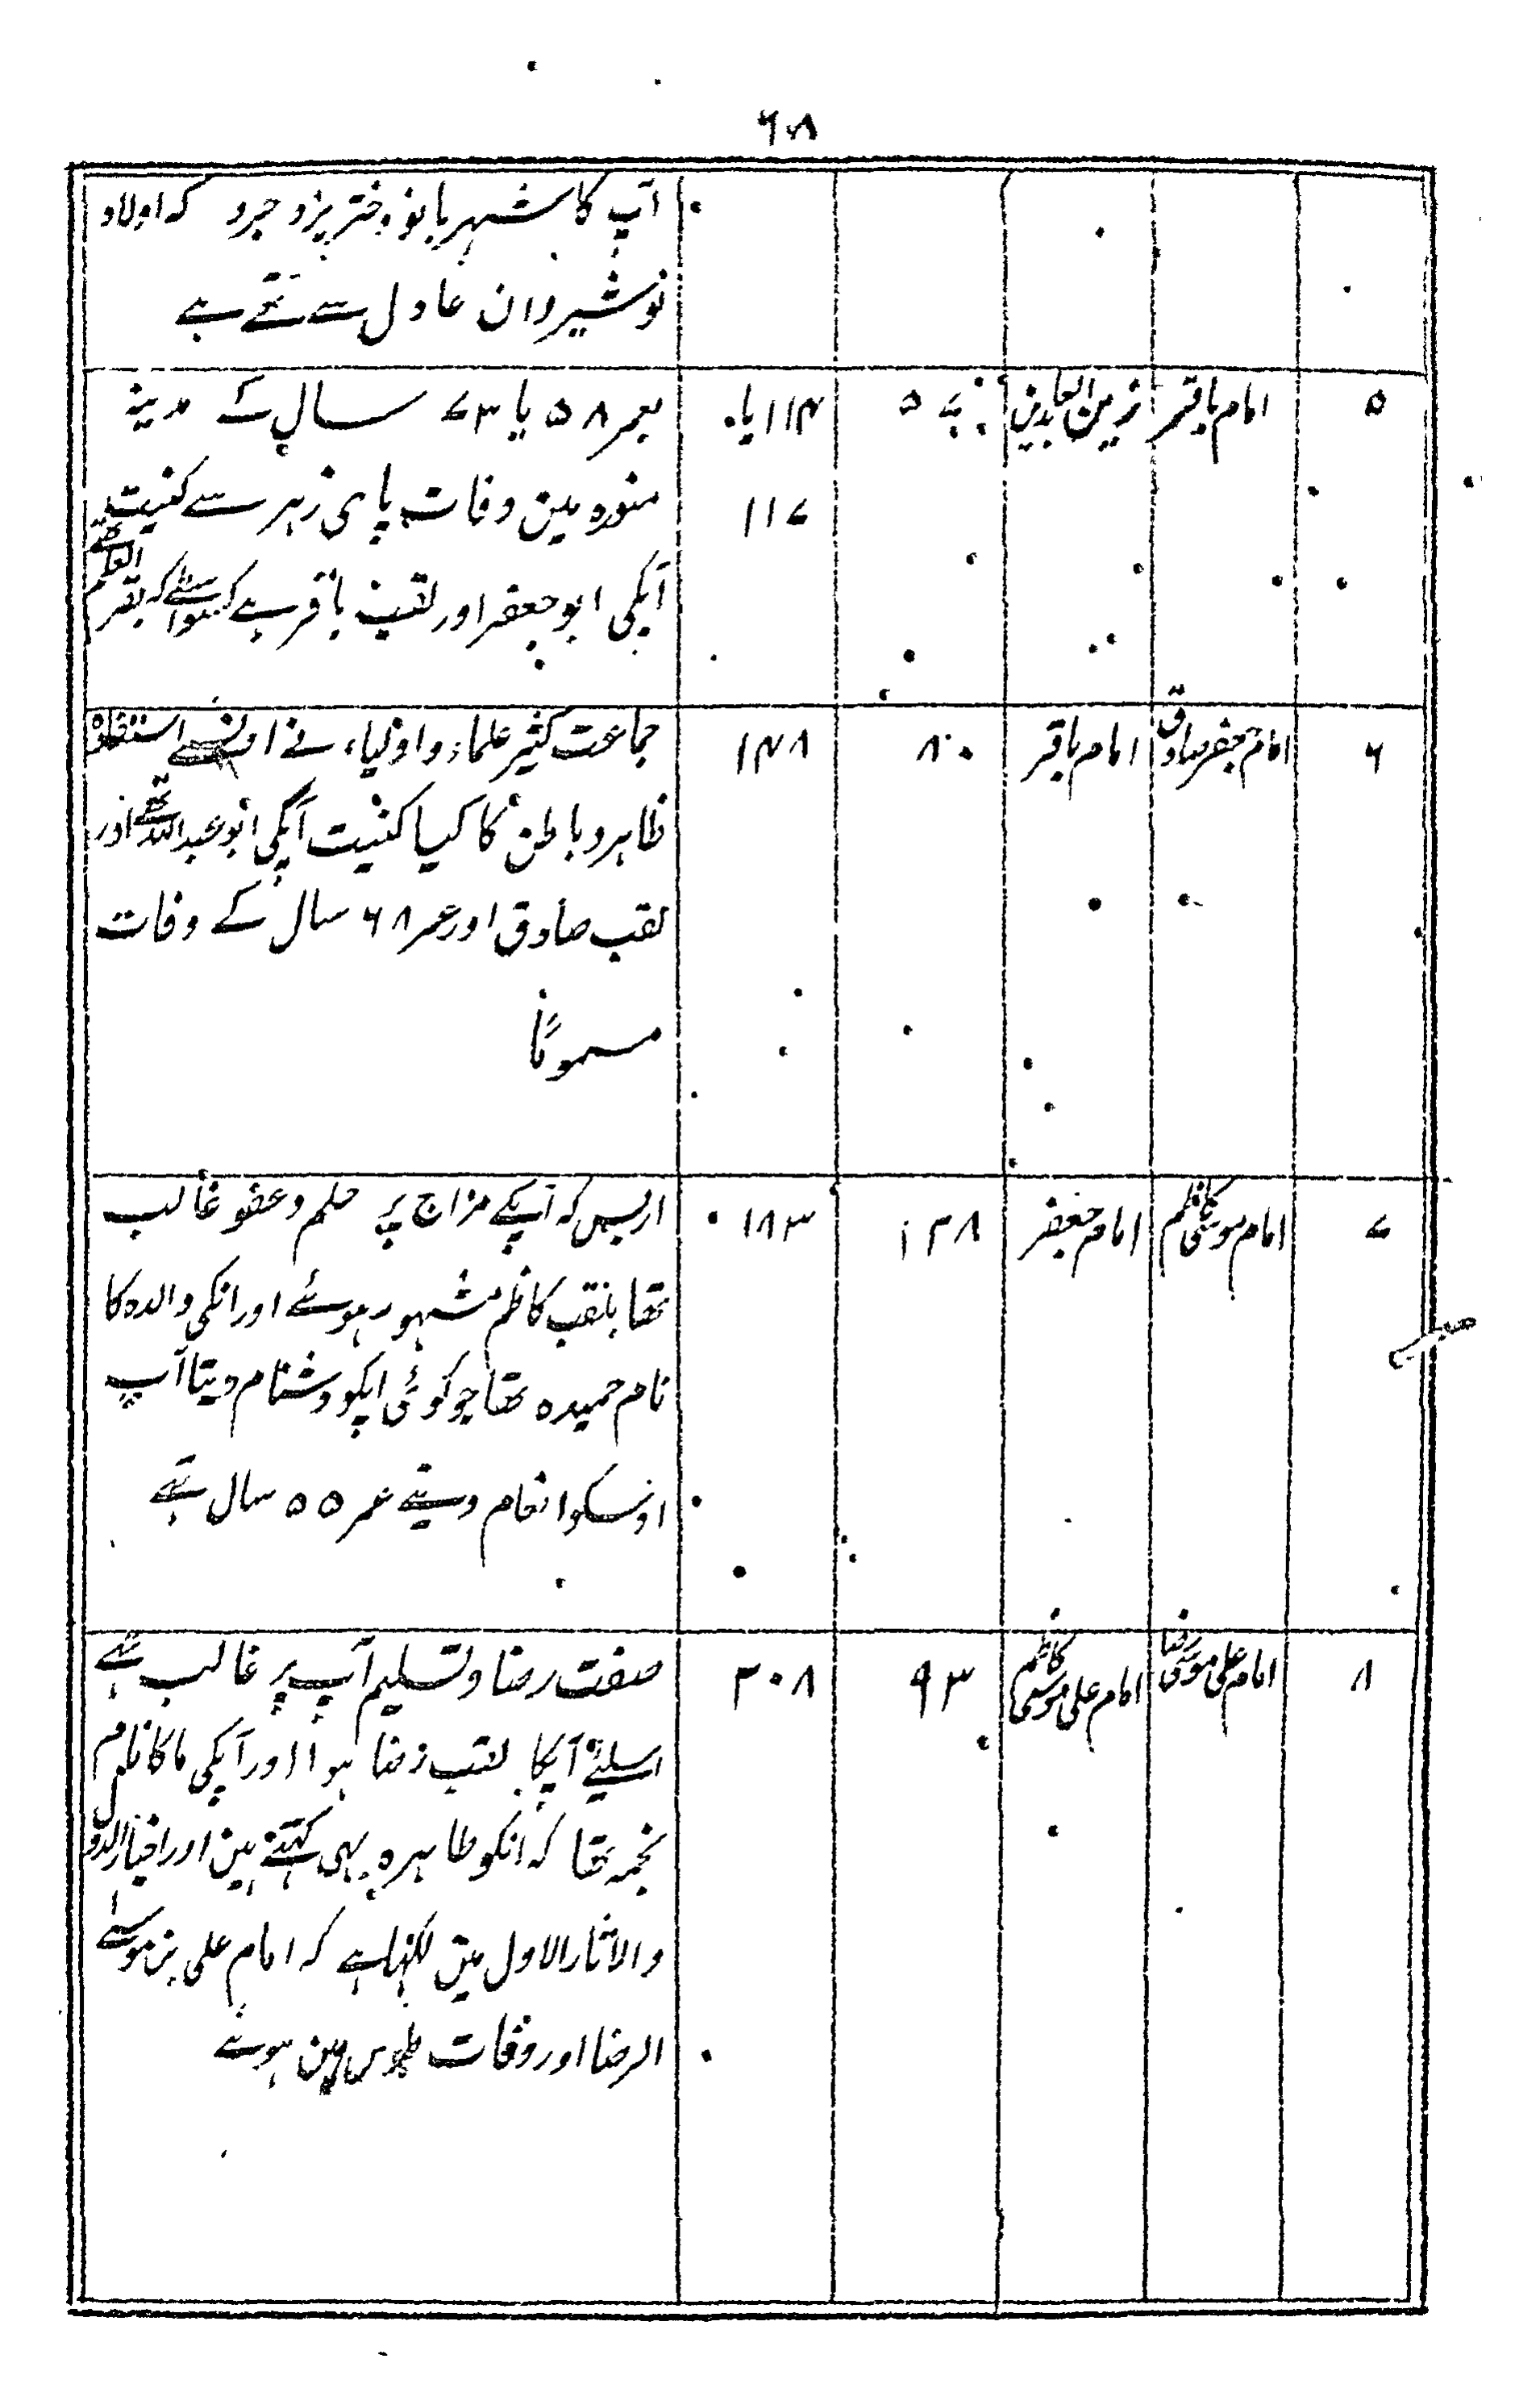 ۶۸
آپ کا شہر بانو دختر یزدجرد کہ اولاد
نوشیروان عادل سے تھے ہے
۵ امام باقر زین العابدین ۵۷ ۱۱۴ یا ۱۱۷
بعمر ۵۸ یا ۷۳ سال کے مدینہ
منورہ مین وفات پای زہر سے کنیت
آپکی ابو جعفر اور لقب باقر ہے کسواسطے کہ بقر العلم تھے
۶ امام جعفر صادق امام باقر ۸۰ ۱۴۸
جماعت کثیر علماء و اولیاء نے اونسے استفادہ
ظاہر و باطن کا کیا کنیت آپکی ابو عبد اللہ تھے اور
لقب صادق اور عمر ۶۸ سال کے وفات
مسموماً
۷ امام موسی کاظم امام جعفر ۱۲۸ ۱۸۳
ازبس کہ آپکے مزاج پر حلم و عفو غالب
تھا بلقب کاظم مشہور ہوئے اور انکی والدہ کا
نام حمیدہ تھا جو کوئی اپکو دشنام دیتا آپ
اوسکو انعام دیتے عمر ۵۵ سال تہے
۸ امام علی موسی رضا امام علی موسی کاظم ۹۳ ۲۰۸
صفت رضا و تسلیم آپ پر غالب تہے
اسلیئے آپکا لقب رضا ہوا اور آپکی ما کا نام
نجمہ تھا کہ انکو طاہرہ بہی کہتے ہین اور اخبار الدول
والاثار الاول مین لکہا ہے کہ امام علی بن موسے
الرضا اور وفات طوس مین ہوئے